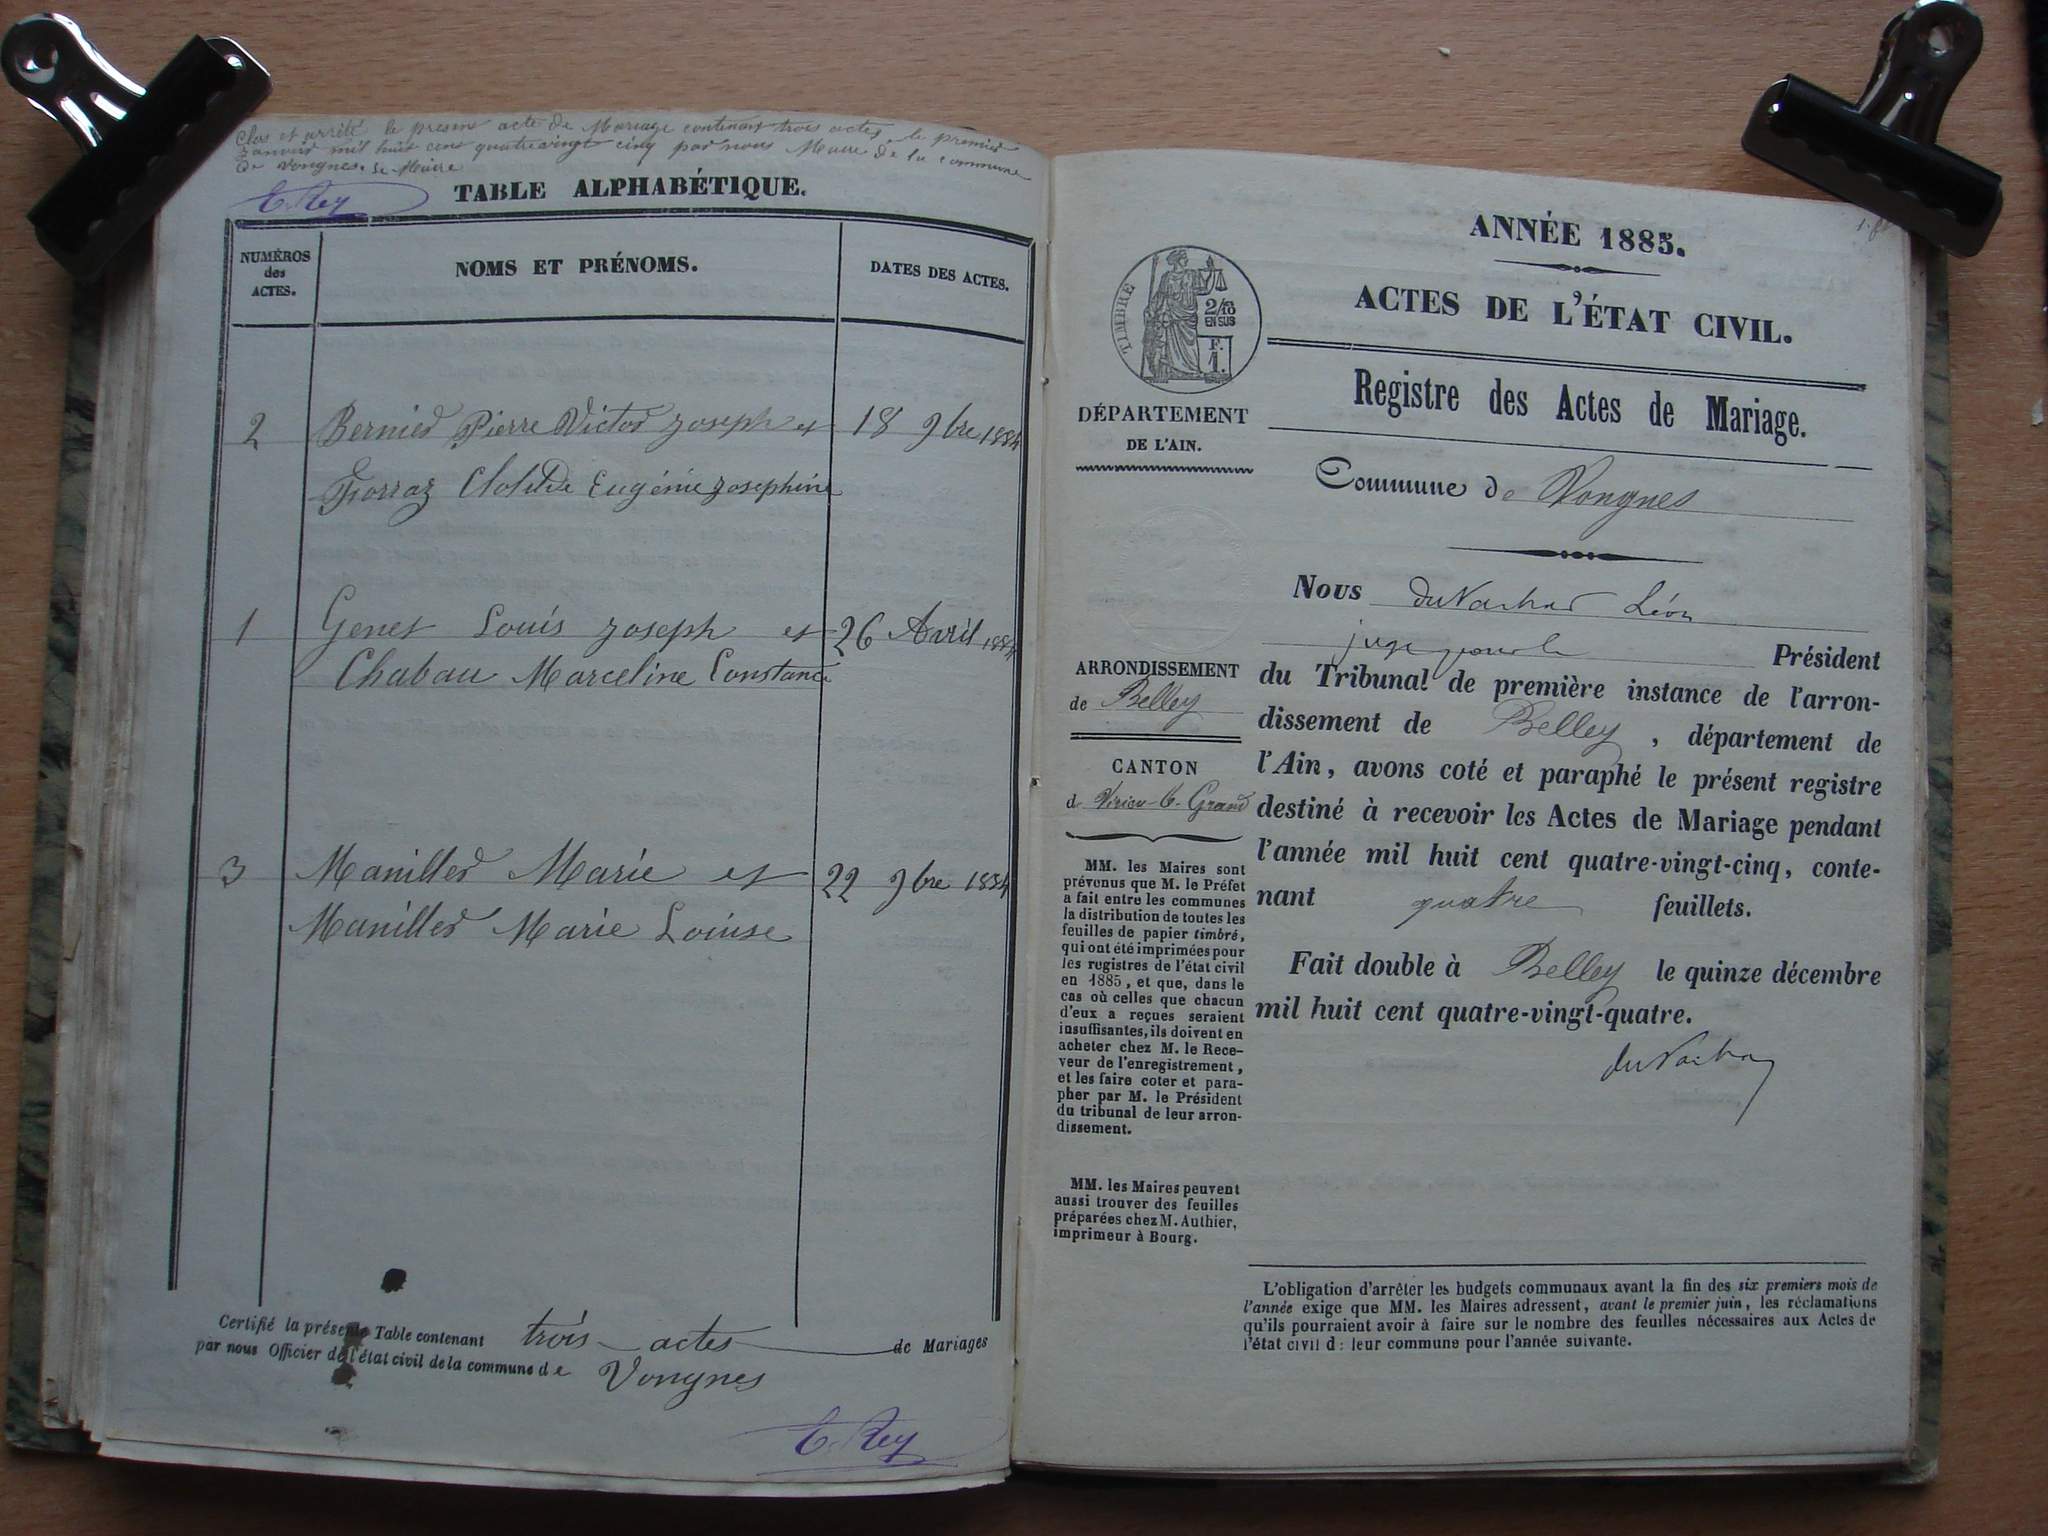 Clos et arrêté le present acte de Mariage contenant trois actes le premier
Janvier mil huit cent quatrevingt cinq par nous Maire de la commune
de Vongnes. Le Maire
E. Rey
TABLE ALPHABÉTIQUE.
NUMÉROS des ACTES.
NOMS ET PRÉNOMS.
DATES DES ACTES.
2 Bernier Pierre Victor Joseph et 18 9bre 1884
Clotilde Eugénie Josephine
1 Genet Louis Joseph et 26 Avril 1884
Chabau Marceline Constance
3 Maniller Marie et 22 9bre 1884
Maniller Marie Louise
Certifié la présente Table contenant trois actes de Mariages
par nous Officier de l'état civil de la commune de Vongnes
E. Rey
ANNÉE 1885.
ACTES DE L'ÉTAT CIVIL.
TIMBRE
2/10
EN SUS
F.
1.
Registre des Actes de Mariage.
DÉPARTEMENT
DE L'AIN.
Commune de Vongnes
Nous Léon
juge Président
du Tribunal de première instance de l'arron-
dissement de Belley, département de
l'Ain, avons coté et paraphé le présent registre
destiné à recevoir les Actes de Mariage pendant
l'année mil huit cent quatre-vingt-cinq, conte-
nant quatre feuillets.
Fait double à Belley le quinze décembre
mil huit cent quatre-vingt-quatre.
ARRONDISSEMENT
de Belley
CANTON
d Virieu-le-Grand
MM. les Maires sont
prévenus que M. le Préfet
a fait entre les communes
la distribution de toutes les
feuilles de papier timbré,
qui ont été imprimées pour
les registres de l'état civil
en 1885, et que, dans le
cas où celles que chacun
d'eux a reçues seraient
insuffisantes, ils doivent en
acheter chez M. le Rece-
veur de l'enregistrement,
et les faire coter et para-
pher par M. le Président
du tribunal de leur arron-
dissement.
MM. les Maires peuvent
aussi trouver des feuilles
préparées chez M. Authier,
imprimeur à Bourg.
L'obligation d'arrêter les budgets communaux avant la fin des six premiers mois de
l'année exige que MM. les Maires adressent, avant le premier juin, les réclamations
qu'ils pourraient avoir à faire sur le nombre des feuilles nécessaires aux Actes de
l'état civil d: leur commune pour l'année suivante.